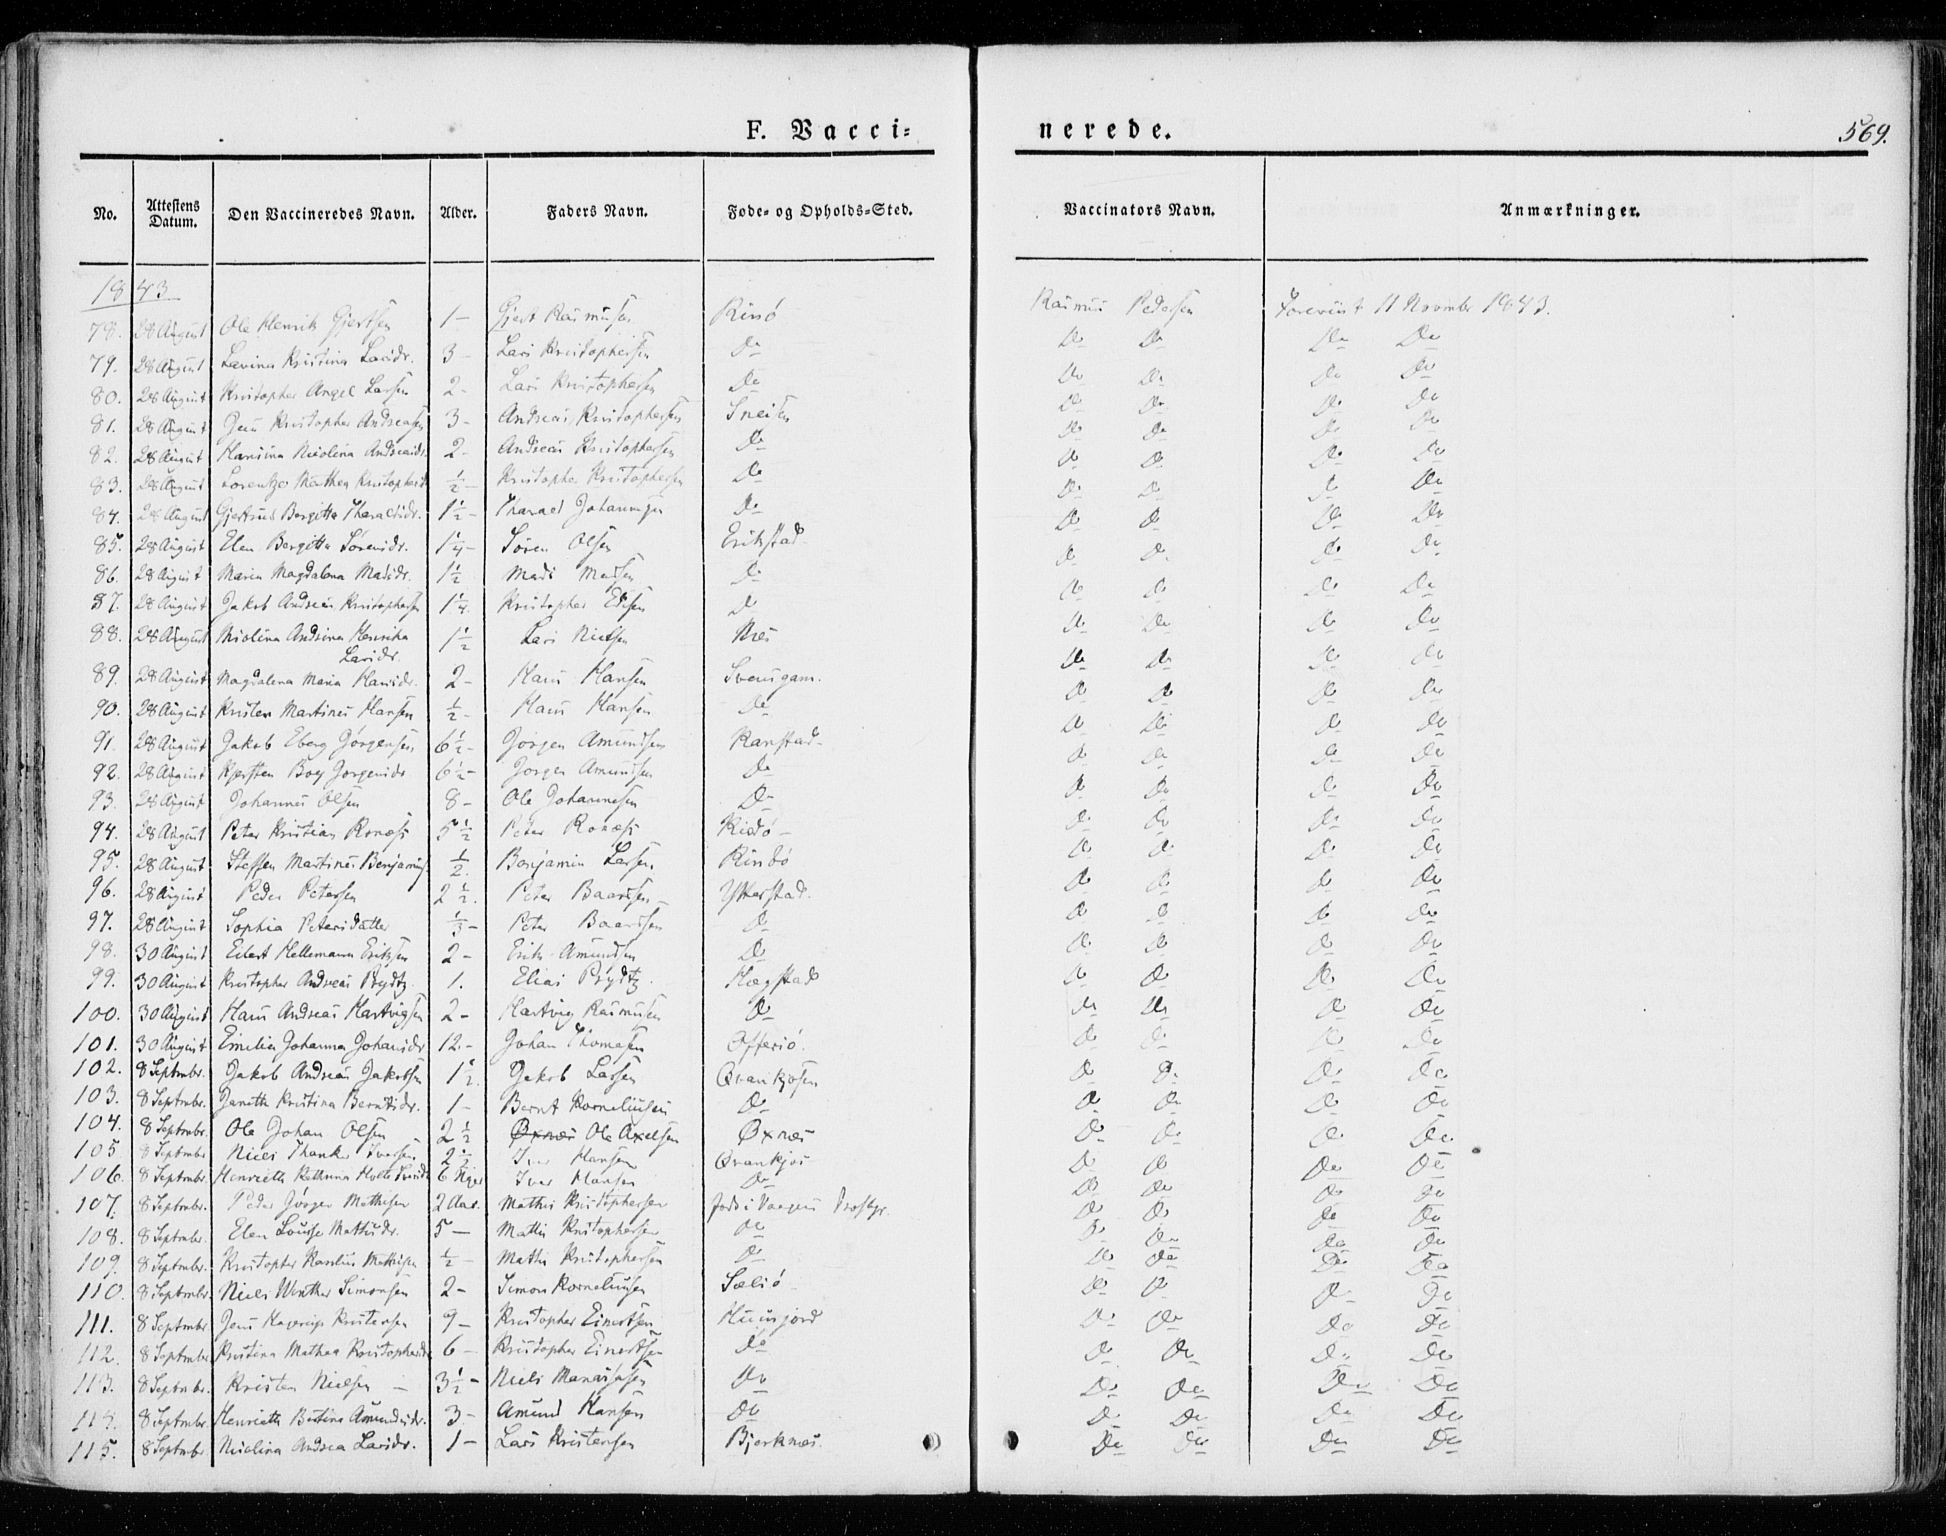 F. Vaccinerede.
569.
No. Attestens Datum. Den Vaccineredes Navn. Alder. Faders Navn. Føde- og Opholds-Sted. Vaccinators Navn. Anmærkninger.
1843
78. 28 August Ole Henrik Gjertsen 1 - Gjert Rasmusen Rinø Rasmus Pedersen Foreviist 11 November 1843.
79. 28 August Lavina Kristina Larsdr. 3 - Lars Kristophersen Do Do Do Do Do
80. 28 August Kristopher Angel Larsen 2 - Lars Kristophersen Do Do Do Do Do
81. 28 August Jens Kristopher Andreasen 3 - Andreas Kristophersen Sneisen Do Do Do Do
82. 28 August Hansina Nicolina Andreasdr. 2 - Andreas Kristophersen Do Do Do Do Do
83. 28 August Lorentze Mathea Kristophersd. ½ - Kristopher Kristophersen Do Do Do Do Do
84. 28 August Gjertrud Bergitta Tharaldsdr. 1½ - Tharald Johannesen Do Do Do Do Do
85. 28 August Elen Bergitta Sørensdr. 1¼ - Søren Olsen Erikstad Do Do Do Do
86. 28 August Maria Magdalena Madsdr. 1½ Mads Madsen Do Do Do Do Do
87. 28 August Jakob Andreas Kristophersen 1¼ Kristopher Edisen Do Do Do Do Do
88. 28 August Nicolina Andrina Henrika Larsdr. 1½ Lars Nielsen Næs Do Do Do Do
89. 28 August Magdalena Maria Hansdr. 2 - Hans Hansen Svensgam. Do Do Do Do
90. 28 August Kristen Martines Hansen ½ - Hans Hansen Do Do Do Do Do
91. 28 August Jakob Eberg Jørgensen 6½ - Jørgen Amundsen Ranstad Do Do Do Do
92. 28 August Kjersten Boey Jørgensdr 6½ - Jørgen Amundsen Do Do Do Do Do
93. 28 August Johannes Olsen 8 - Ole Johannesen Do Do Do Do Do
94. 28 August Peter Kristian Ronæss 5½ Peter Ronæss Risø - Do Do Do Do
95. 28 August Steffen Martines Benjamins. ½. Benjamin Larsen Rindø Do Do Do Do
96. 28 August Peder Petersen 2½. Peter Baardsen - Ytterstad. Do Do Do Do
97. 28 August Sophia Petersdatter ⅓ - Peter Baardsen Do Do Do Do Do
98. 30 August Eilert Hellemann Eriksen 2 - Erik Amundsen Do Do Do Do Do
99. 30 August Kristopher Andreas Prydtz 1. Elias Prydtz. Hægstad Do Do Do Do
100. 30 August Hans Andreas Hartvigsen 2 - Hartvig Rasmusen Do Do Do Do Do
101. 30 August Emilia Johanna Johansdr 12. - Johan Thomesen Offersø. Do Do Do Do
102. 8 Septmbr. Jakob Andreas Jakobsen 1½. Jakob Larsen Qvankjosen Do Do Do Do
103. 8 Septmbr. Janetta Kristina Berntsdr. 1 - Bernt Korneliusen Do Do Do Do Do
104. 8 Septmbr. Ole Johan Olsen 2½ Øxnæs Ole Axelsen Øxnæs Do Do Do Do
105 8 Septmbr Niels Thanke Iversen 2½ Iver Hansen Qvankjos Do Do Do Do
106. 8 Septmbr. Henrietta Kathrina Holte Iversdr 6 Uger Iver Hansen Do Do Do Do Do
107. 8 Septmbr. Peder Jørgen Mathisen 2 Aar. Mathis Kristophersen Føds i Vaagens Præstgj. Do Do Do Do
108. 8 Septmbr. Elen Louise Mathisdr. 5 - Mathis Kristophersen Do Do Do Do Do
109. 8 Septmbr. Kristopher Karelius Mathisen ½ - Mathis Kristophersen Do Do Do Do Do
110. 8 Septmbr. Niels Winther Simonsen 2 - Simon Korneliusen Sælsø Do Do Do Do
111. 8 Septmbr Jens Kristensen 9 - Kristopher Einertsen Huusjord Do Do Do Do
112. 8 Septmbr Kristina Mathea Kristophersdr 6 - Kristopher Einertsen Do Do Do Do Do
113. 8 Septmbr. Kristen Nielsen - 3½ - Niels Manasesen Do Do Do Do Do
114. 8 Septmbr. Henrietta Bertina Amundsdr. 3 - Amund Hansen Do Do Do Do Do
115. 8 Septmbr Nicolina Andrea Larsdr. 1 - Lars Kristensen Bjerknæs. Do Do Do Do